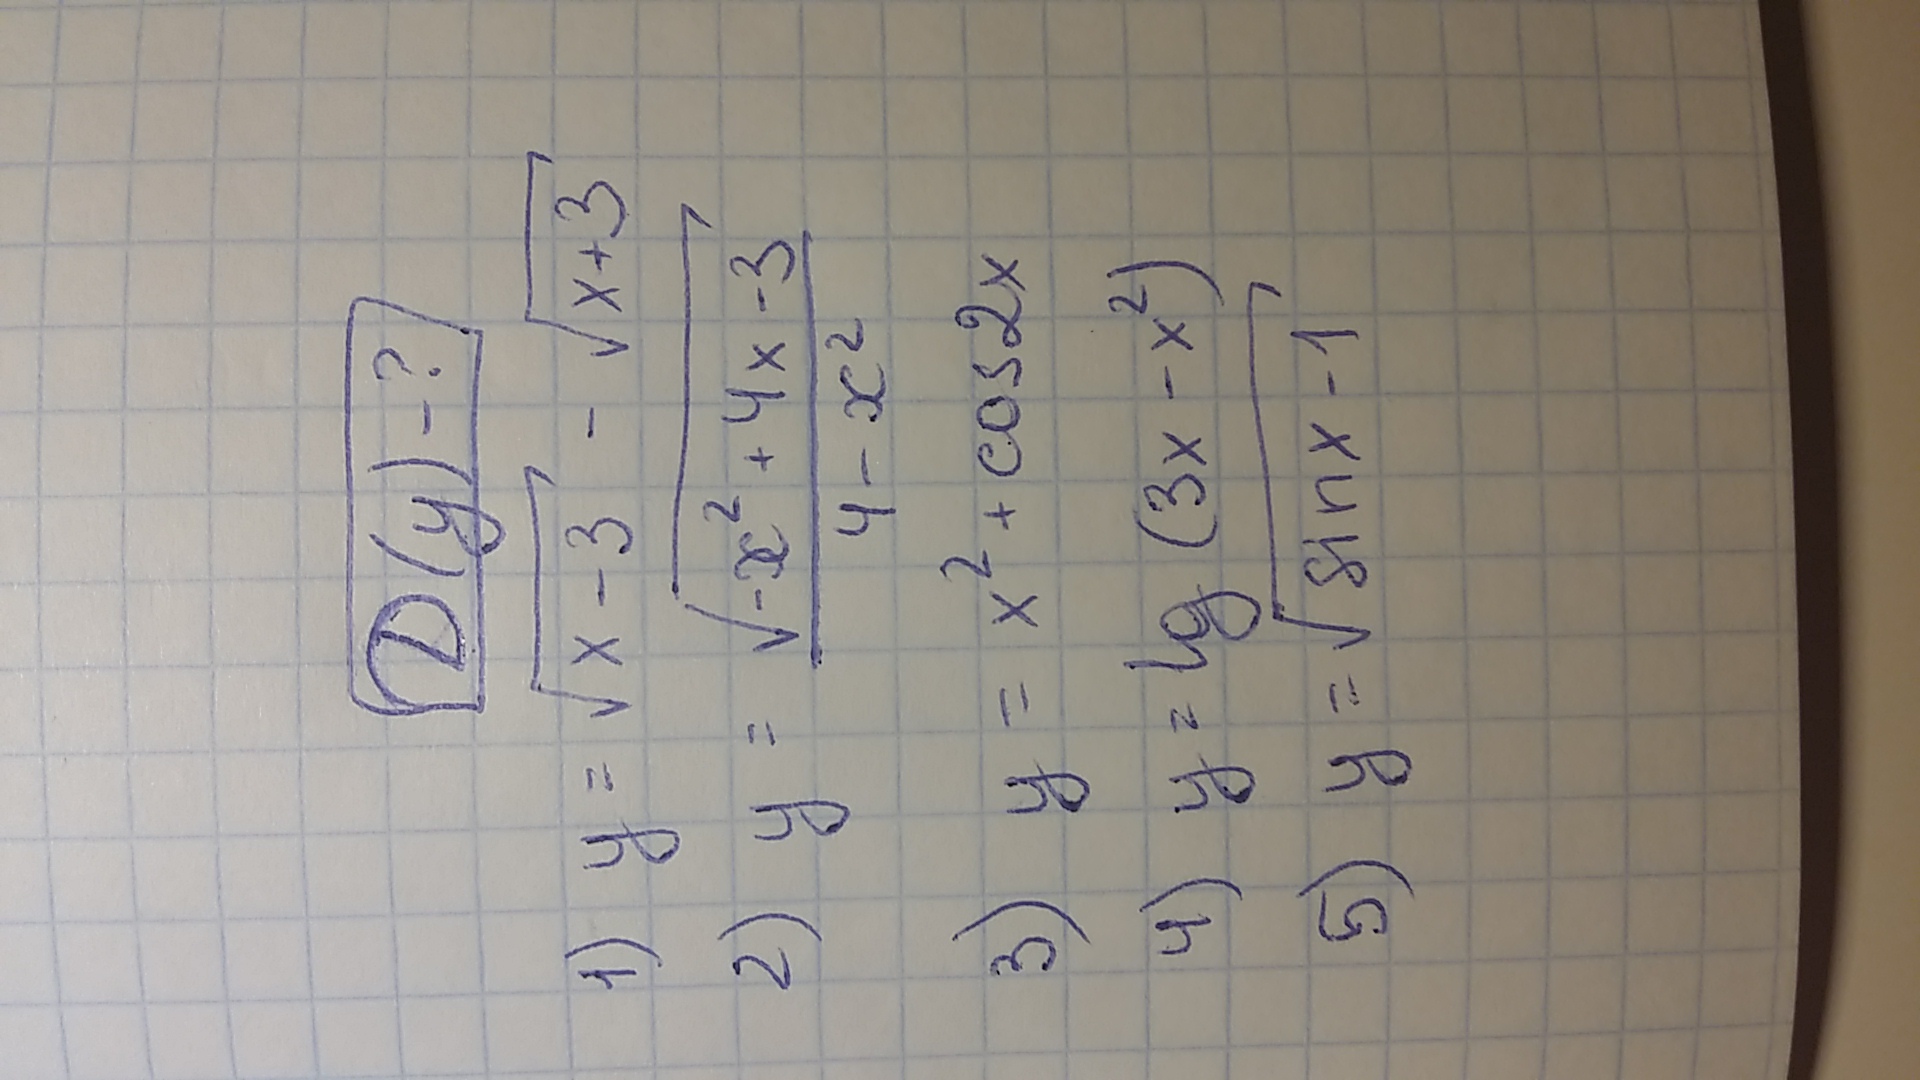 D(y) - ?
1) y = √(x - 3) - √(x + 3)
2) y = √(-x² + 4x - 3) / (4 - x²)
3) y = x² + cos2x
4) y = lg (3x - x²)
5) y = √(sinx - 1)